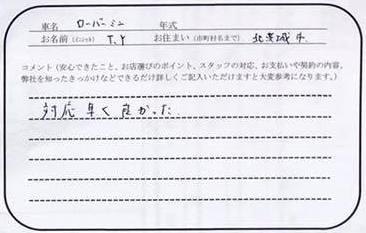 車名 ローバーミニ 年式
お名前(イニシャル) T.Y お住まい(市町村名まで) 北茨城市
コメント(安心できたこと、お店選びのポイント、スタッフの対応、お支払いや契約の内容、
弊社を知ったきっかけなどできるだけ詳しくご記入いただけますと大変参考になります。)
対応早く良かった。